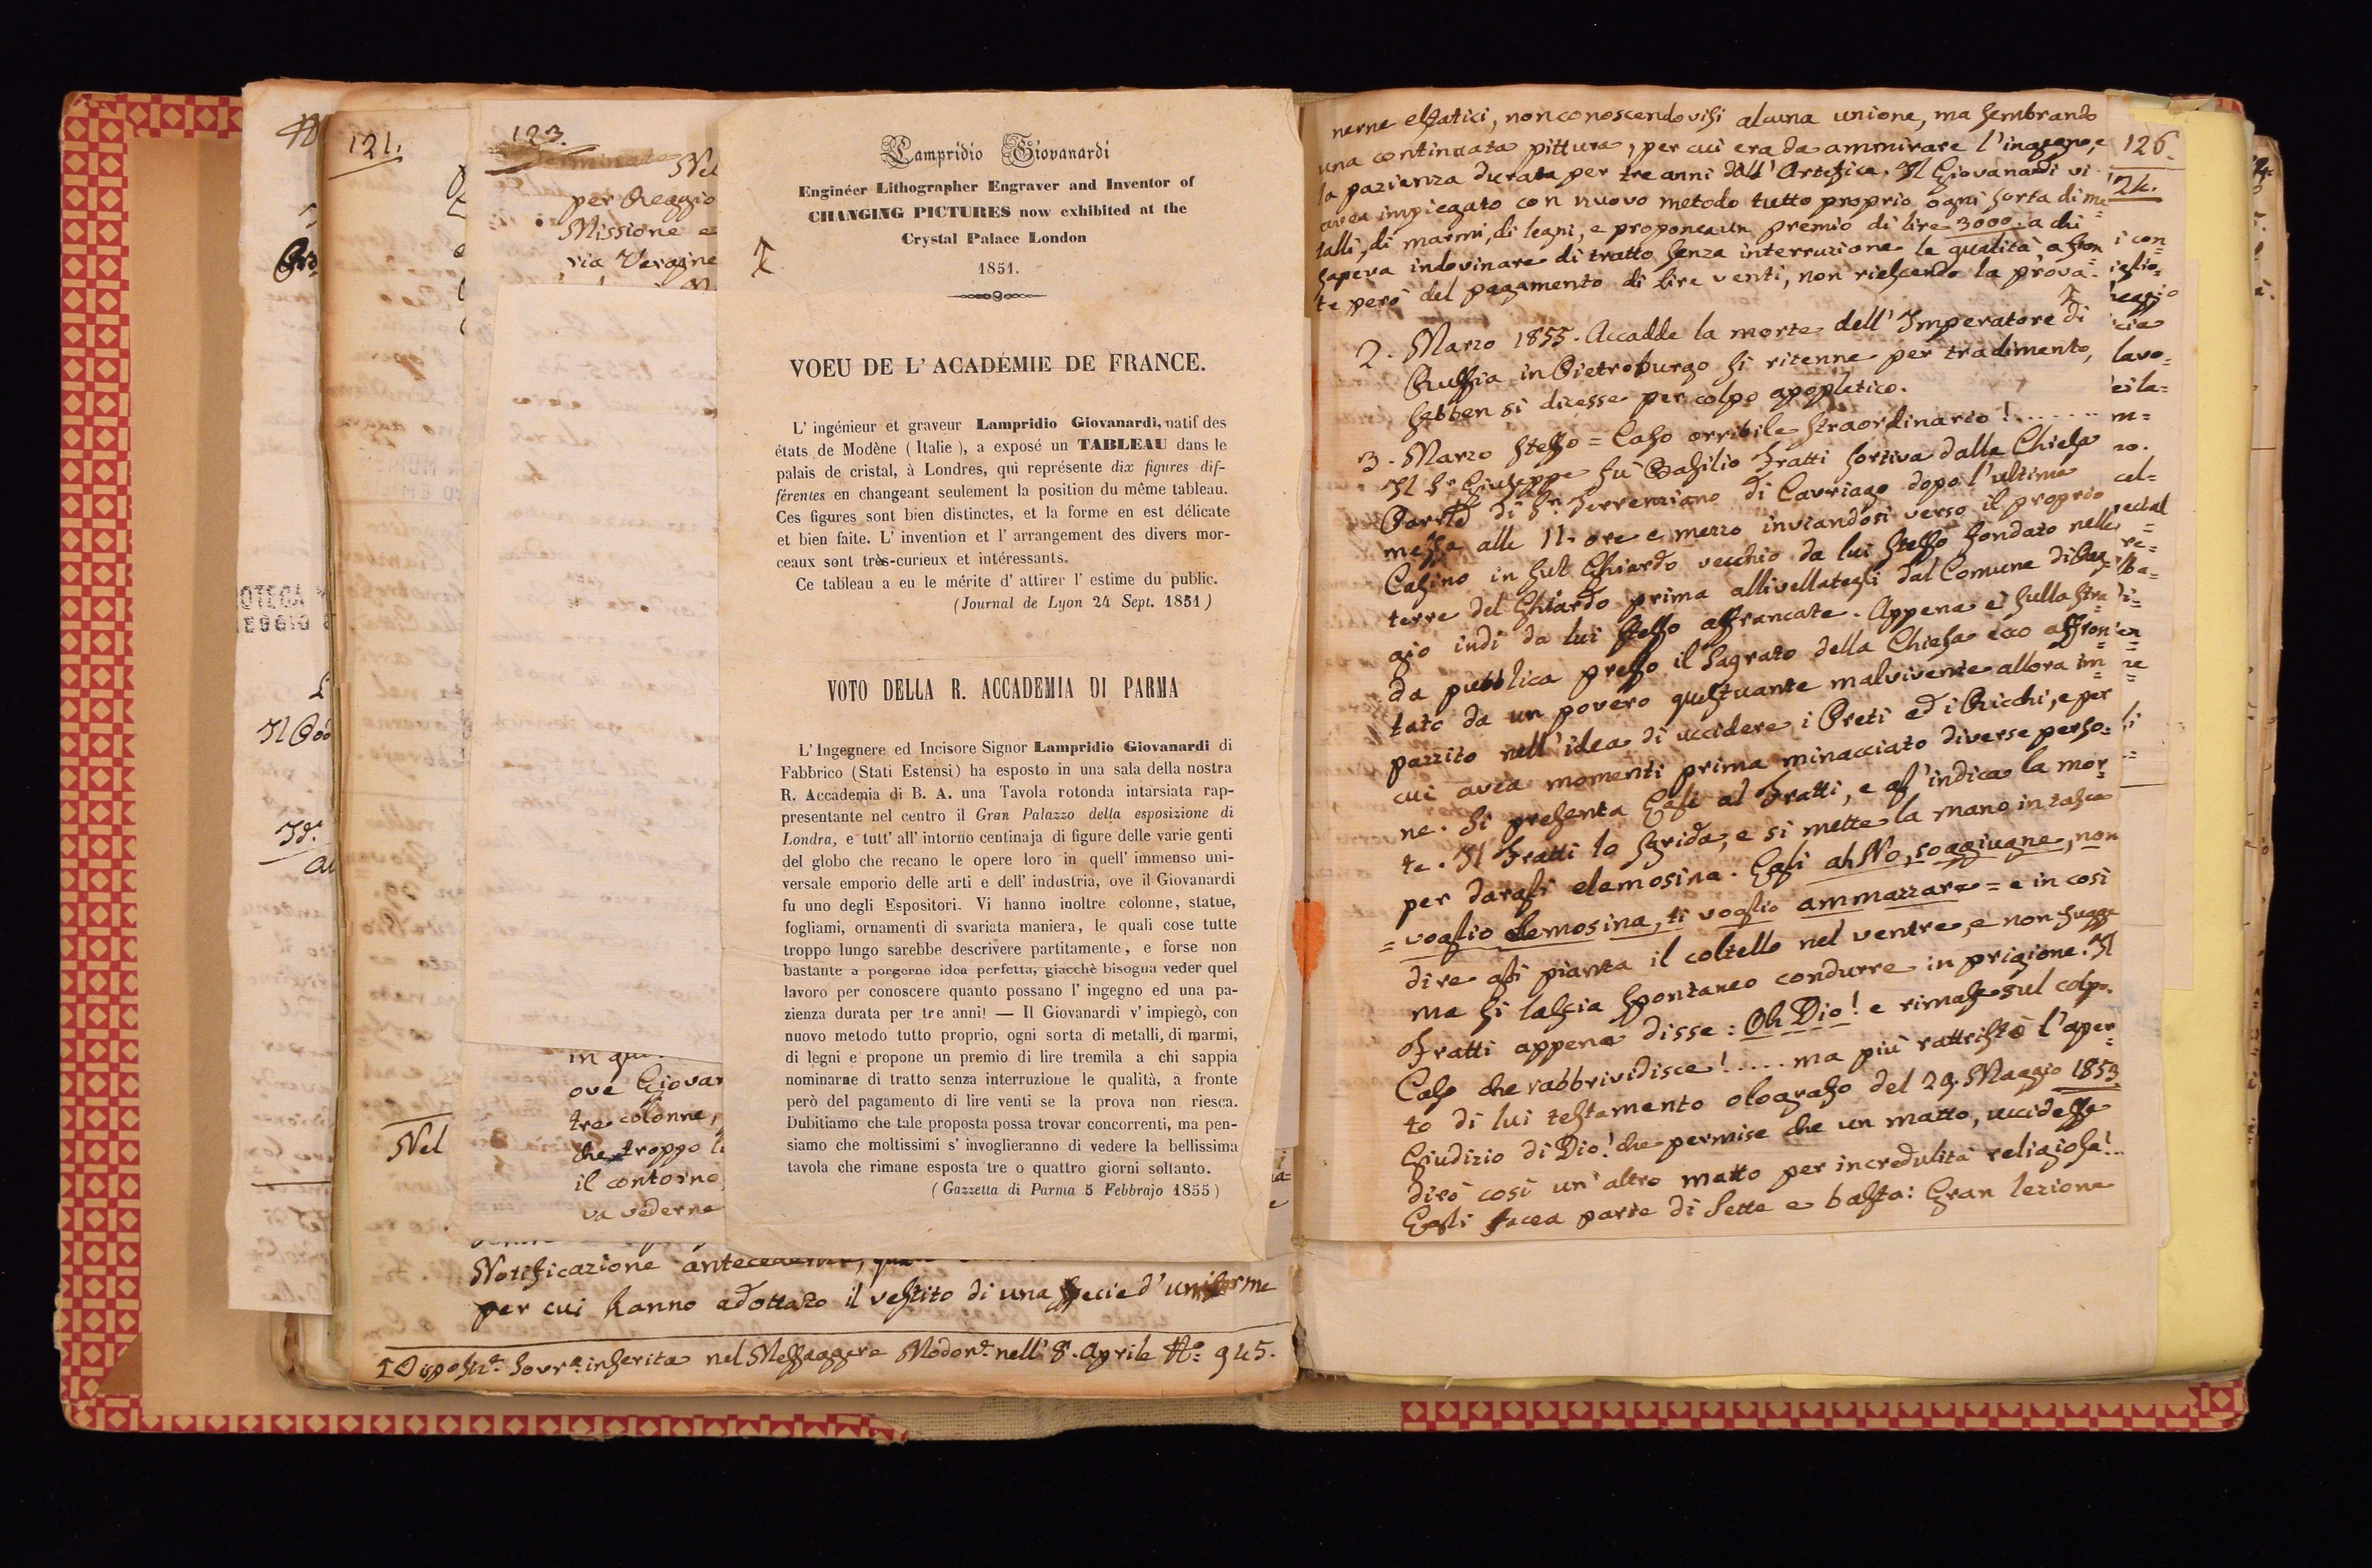 121.
123.
Nel
per Reggio
Missione e
ria Vergine
OTECA
EGGIO
Il
Nel
in qu
ove Giovan
tre colonne,
che troppo l
il contorno,
va vederne
Notificazione antecedente,
per cui hanno adottato il vestito di una specie d'uniforme
nell' 8. Aprile No. 945.
Lampridio Giovanardi
Enginéer Lithographer Engraver and Inventor of
CHANGING PICTURES now exhibited at the
Crystal Palace London
1851.
VOEU DE L' ACADÉMIE DE FRANCE.
L' ingénieur et graveur Lampridio Giovanardi, natif des
états de Modène ( Italie ), a exposé un TABLEAU dans le
palais de cristal, à Londres, qui représente dix figures dif-
férentes en changeant seulement la position du même tableau.
Ces figures sont bien distinctes, et la forme en est délicate
et bien faite. L' invention et l' arrangement des divers mor-
ceaux sont très-curieux et intéressants.
Ce tableau a eu le mérite d' attirer l' estime du public.
(Journal de Lyon 24 Sept. 1851 )
VOTO DELLA R. ACCADEMIA DI PARMA
L' Ingegnere ed Incisore Signor Lampridio Giovanardi di
Fabbrico (Stati Estensi) ha esposto in una sala della nostra
R. Accademia di B. A. una Tavola rotonda intarsiata rap-
presentante nel centro il Gran Palazzo della esposizione di
Londra, e tutt' all' intorno centinaja di figure delle varie genti
del globo che recano le opere loro in quell' immenso uni-
versale emporio delle arti e dell' industria, ove il Giovanardi
fu uno degli Espositori. Vi hanno inoltre colonne, statue,
fogliami, ornamenti di svariata maniera, le quali cose tutte
troppo lungo sarebbe descrivere partitamente, e forse non
bastante a porgerne idea perfetta, giacchè bisogna veder quel
lavoro per conoscere quanto possano l' ingegno ed una pa-
zienza durata per tre anni! — Il Giovanardi v' impiegò, con
nuovo metodo tutto proprio, ogni sorta di metalli, di marmi,
di legni e propone un premio di lire tremila a chi sappia
nominarne di tratto senza interruzione le qualità, a fronte
però del pagamento di lire venti se la prova non riesca.
Dubitiamo che tale proposta possa trovar concorrenti, ma pen-
siamo che moltissimi s' invoglieranno di vedere la bellissima
tavola che rimane esposta tre o quattro giorni soltanto.
( Gazzetta di Parma 5 Febbrajo 1855 )
nerne estatici, non conoscendovisi alcuna unione, ma sembrando
una continuata pittura, per cui era da ammirare l'ingegno, e
la pazienza durata per tre anni dall' Artefice. Il Giovanardi vi
avea impiegato con nuovo metodo tutto proprio ogni sorta di me=
talli, di marmi, di legni, e proponea un premio di lire 3000. a chi
sapeva indovinare di tratto senza interruzione le qualità, a fron
te però del pagamento di lire venti, non riescendo la prova.
2. Marzo 1855. Accadde la morte dell' Imperatore di
Russia in Pietroburgo si ritenne per tradimento,
sebben si dicesse per colpo apopletico.
3. Marzo stesso = Caso orribile straordinario!......
Il Sr Giuseppe fu Basilio Fratti sortiva dalla Chiesa
Parrle di Sn Terrenziano di Cavriago dopo l'ultima
messa alle 11. ore e mezzo inviandosi verso il proprio
Casino in sul Ghiardo vecchio da lui stesso fondato nelle
terre del Ghiardo prima allivellategli dal Comune di
gio indi da lui stesso affrancate. Appena è sulla stra
da pubblica presso il Sagrato della Chiesa ecco affron
tato da un povero questuante malvivente allora im
pazzito nell' idea di uccidere i Preti ed i Ricchi, e per
cui avea momenti prima minacciato diverse perso=
ne. Si presenta Egli al Fratti, e gl' indica la mor
te. Il Fratti lo sgrida, e si mette la mano in tasca
per dargli elemosina. Egli ah No, soggiugne, non
= voglio elemosina, ti voglio ammazzare = e in così
dire gli pianta il coltello nel ventre, e non fugge
ma si lascia spontaneo condurre in prigione. Il
Fratti appena disse: Oh Dio! e rimase sul colpo.
Caso che rabbrividisce!..... ma più rattristò l'aper=
to di lui testamento olografo del 29. Maggio 1853
Giudizio di Dio! che permise che un matto, uccidesse
dirò così un' altro matto per incredulità religiosa!..
Egli facea parte di Sette e basta: Gran lezione
126.
24.
i con=
lavo=
m=
no.
cal=